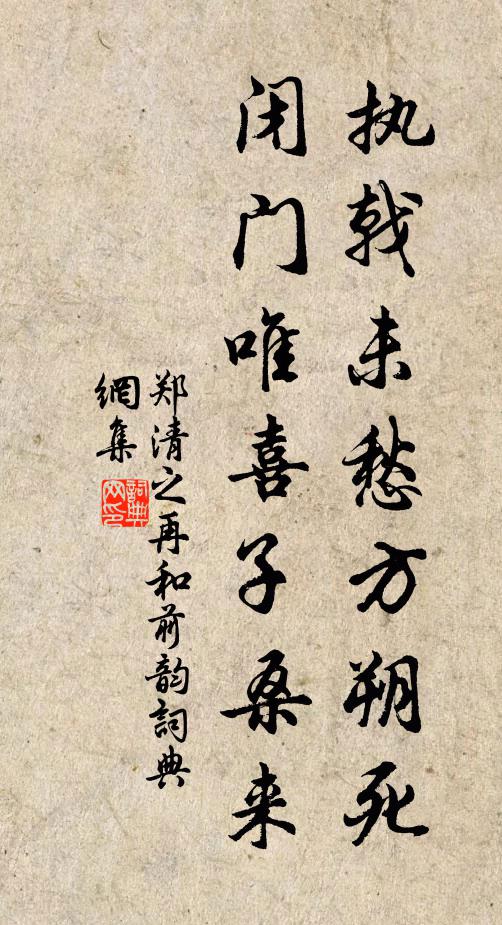 执戟未愁方朔死
闭门唯喜子桑来
郑清之再和前韵詞典
網集
詞典
网印